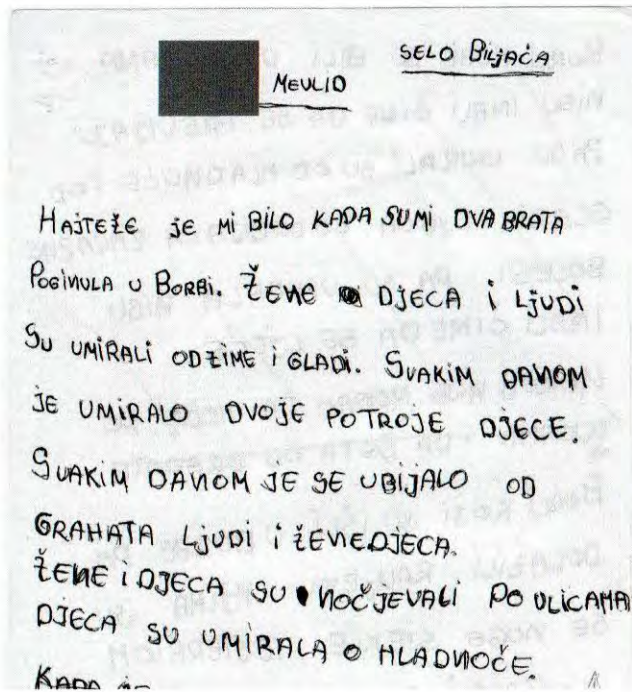 SELO BILJAČA
MEVLID
HAJTEŽE JE MI BILO KADA SU MI DVA BRATA
POGINULA U BORBI. ŽENE DJECA I LJUDI
SU UMIRALI OD ZIME I GLADI. SVAKIM DANOM
JE UMIRALO DVOJE POTROJE DJECE.
SVAKIM DANOM JE SE UBIJALO OD
GRAHATA LJUDI I ŽENEDJECA.
ŽENE I DJECA SU NOČJEVALI PO ULICAMA
DJECA SU UMIRALA O HLADNOČE.
KADA JE